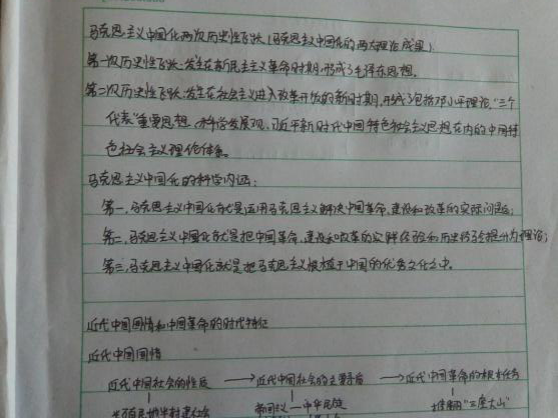 马克思主义中国化两次历史性飞跃(马克思主义中国化的两大理论成果)
第一次历史性飞跃:发生在新民主主义革命时期,形成了毛泽东思想。
第二次历史性飞跃:发生在社会主义进入改革开放的新时期,形成了包括邓小平理论,“三个
代表”重要思想,科学发展观,习近平新时代中国特色社会主义思想在内的中国特
色社会主义理论体系。
马克思主义中国化的科学内涵:
第一,马克思主义中国化就是运用马克思主义解决中国革命,建设和改革的实际问题;
第二,马克思主义中国化就是把中国革命,建设和改革的实践经验和历史经验提升为理论;
第三,马克思主义中国化就是把马克思主义根植于中国的优秀文化之中。
近代中国国情和中国革命的时代特征
近代中国国情
近代中国社会的性质 → 近代中国社会的主要矛盾 → 近代中国革命的根本任务
半殖民地半封建社会 帝国主义—中华民族 推翻“三座大山”